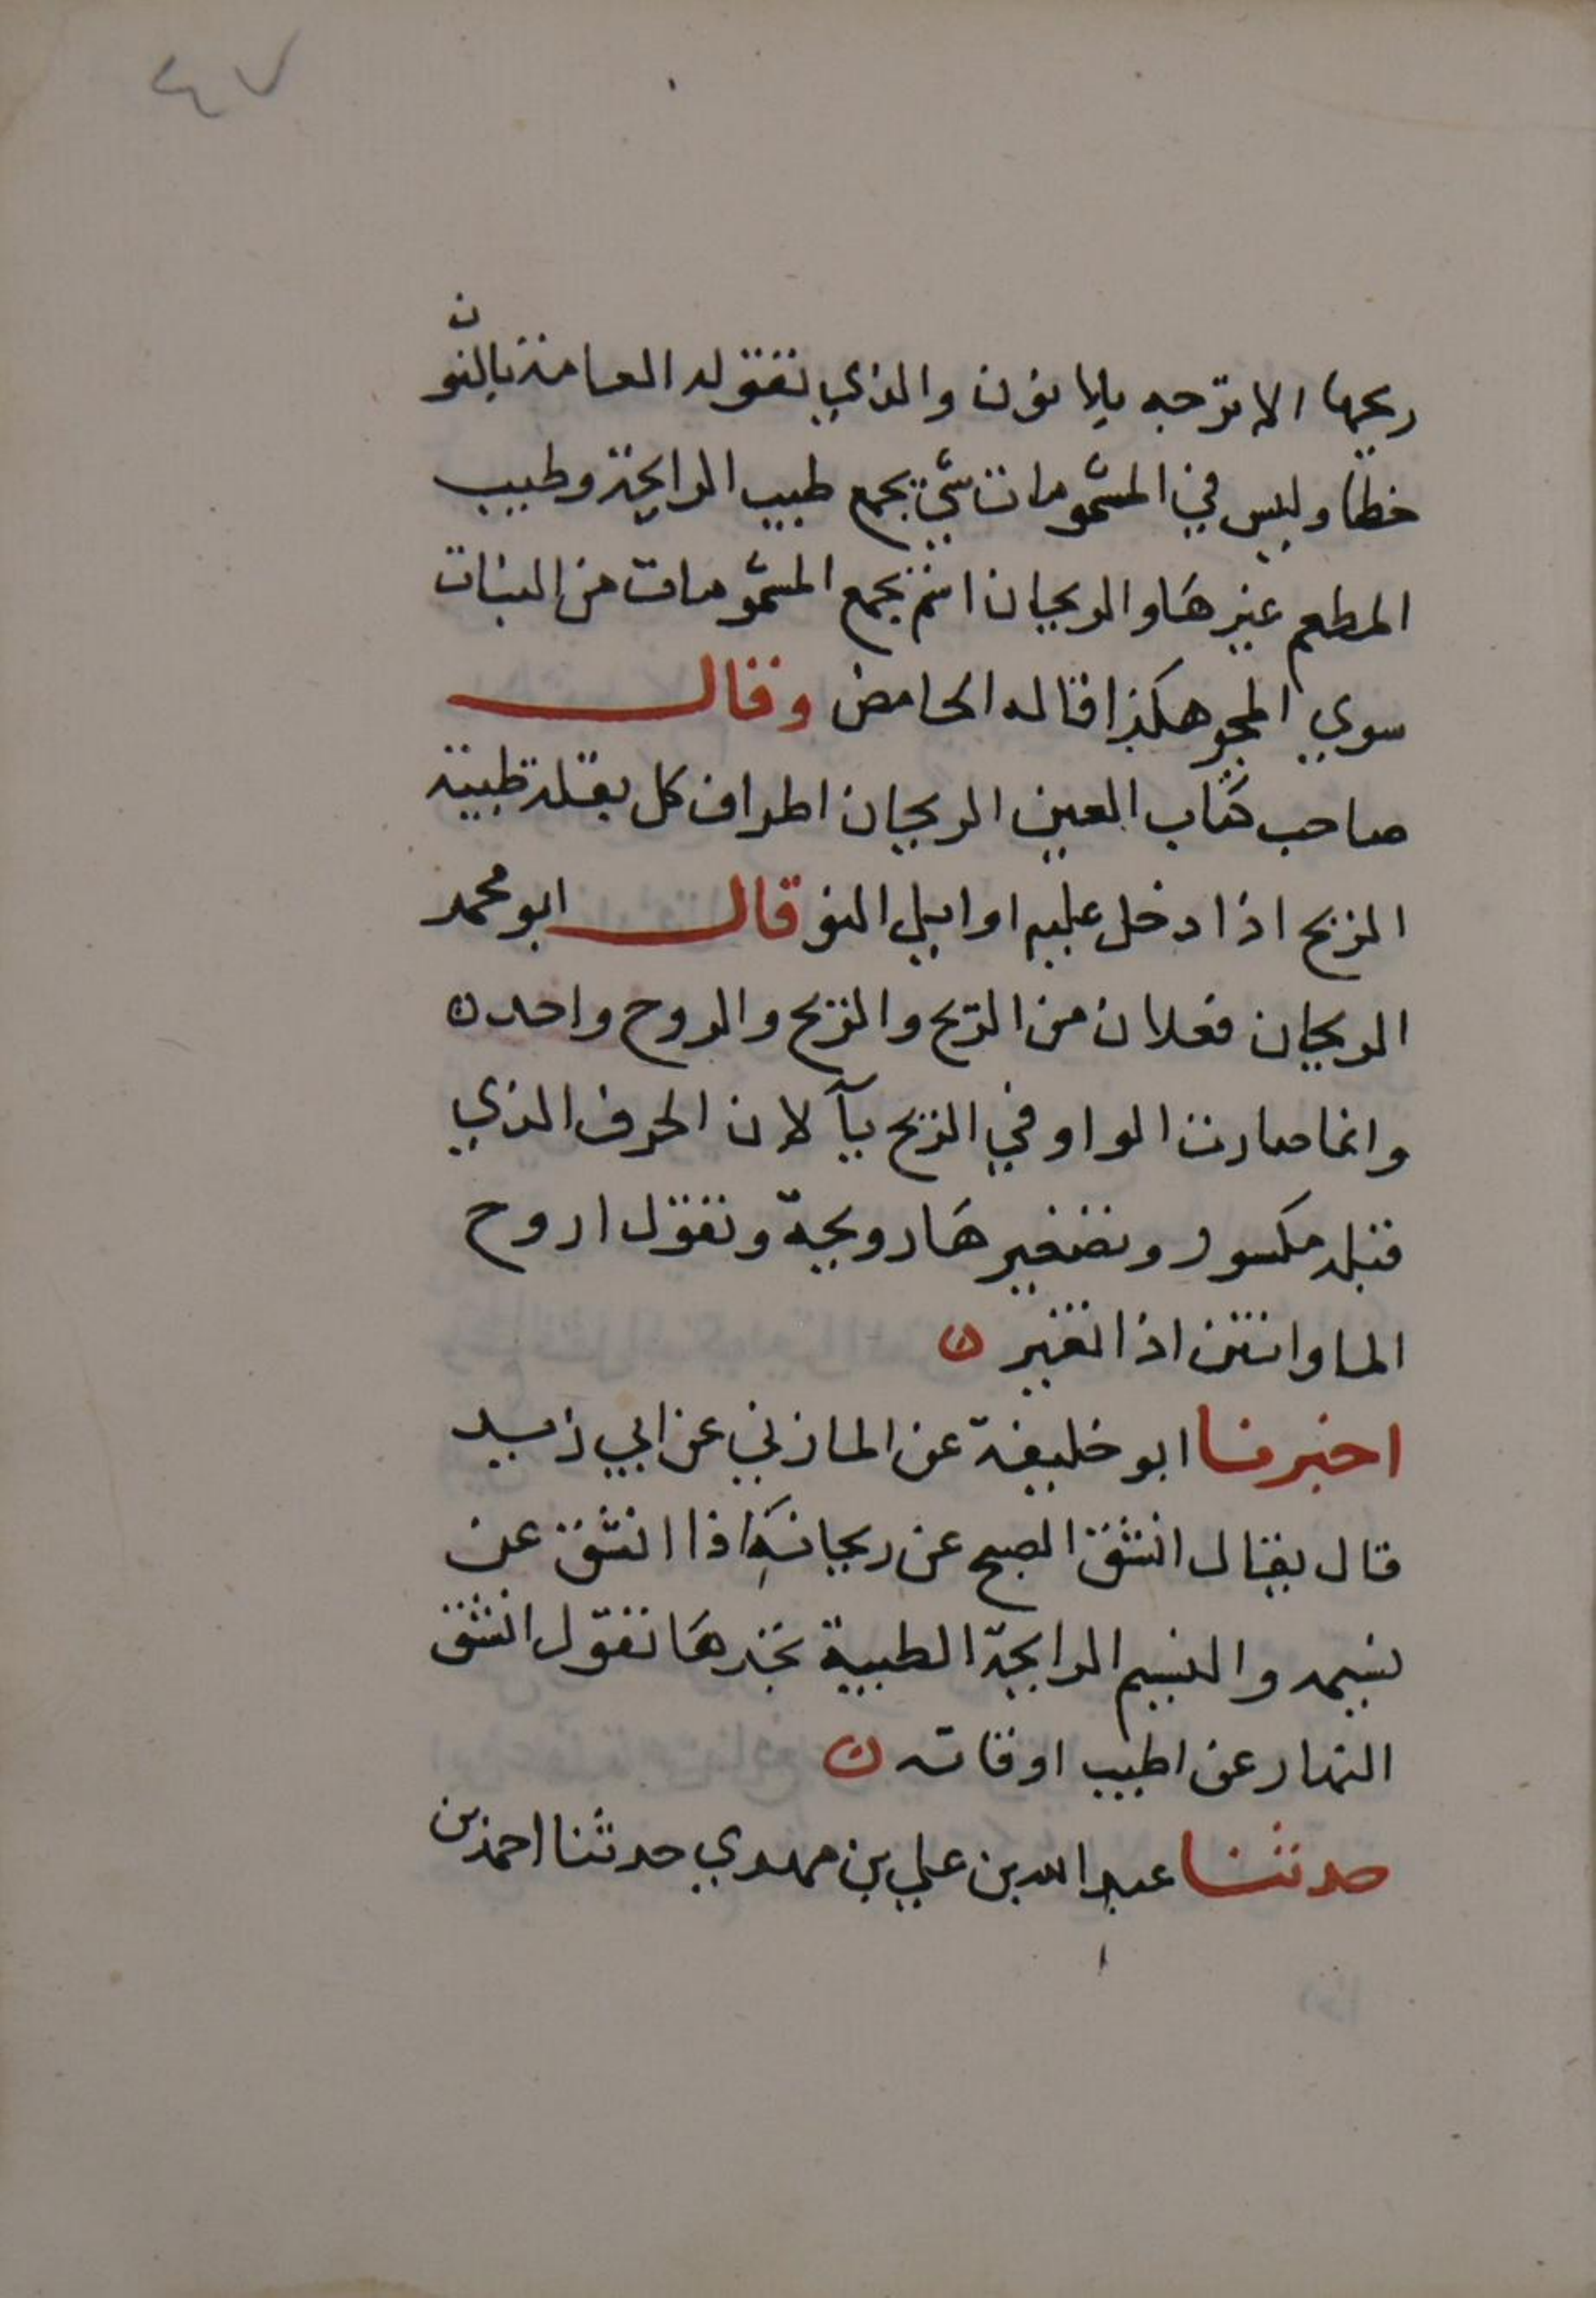 ٤٧
ريحها الاترجه بلا نون والذي تقوله العامة بالنون
خطا وليس في المشمومات شيّ يجمع طيب الرايحة وطيب
المطعم غيرها والريحان اسم يجمع المشمومات من النبات
سوي هكذا قاله الحامض وقال
صاحب كتاب العين الريحان اطراف كل بقلة طيبة
الريح اذا دخل عليه اوايل النور قال ابو محمد
الريحان فعلان من الريح والريح والروح واحد ن
وانما صارت الواو في الريح يآ لان الحرف الذي
قبله مكسور وتصغيرها رويحة وتقول اروح
الما وانتن اذا تغير ن
اخبرنا ابو خليفة عن المازني عن ابي زيد
قال يقال انشق الصبح عن ريحانه اذا انشق عن
نسيمه والنسيم الرايحة الطيبة تجدها تقول انشق
النهار عن اطيب اوقاته ن
حدثنا عبد الله بن علي بن مهدي حدثنا احمد بن